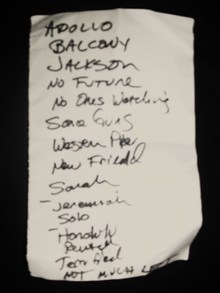 APOLLO
BALCONY
JACKSON
NO FUTURE
No Ones Watching
Some Guys
Western Pier
New Friend
Sarah
- Jeremiah
Solo
- Honolulu
Tom Ford
NOT MUCH LEFT